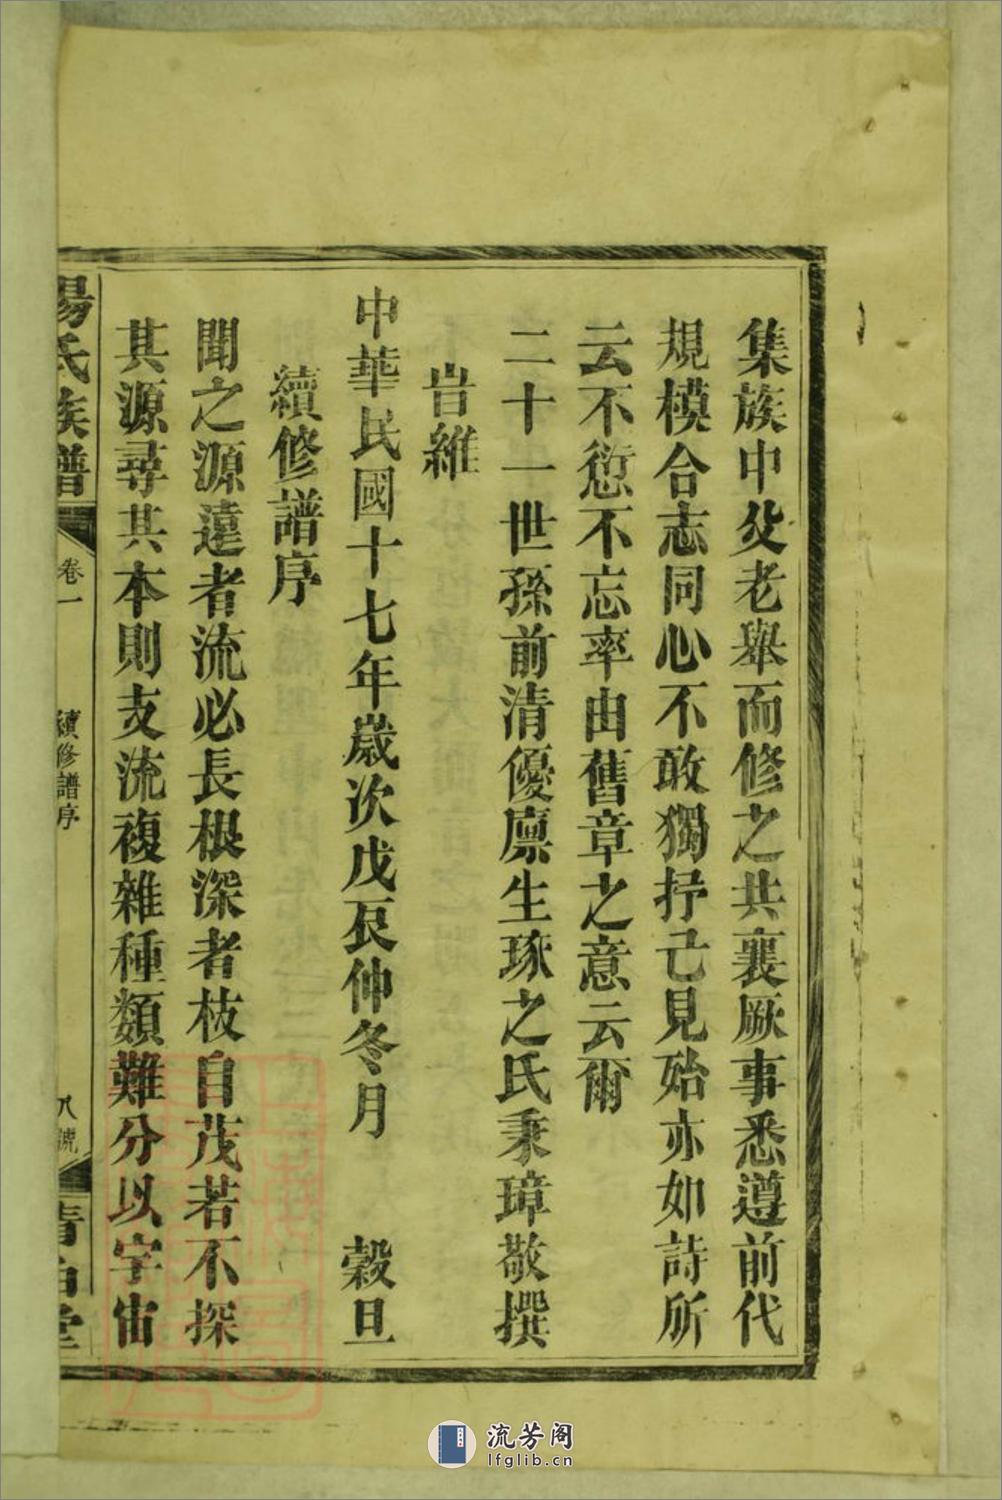 集族中父老舉而修之共襄厥事悉遵前代
規模合志同心不敢獨抒己見殆亦如詩所
云不愆不忘率由舊章之意云爾
二十一世孫前清優廩生琢之氏秉璋敬撰
旹維
中華民國十七年歲次戊辰仲冬月 穀旦
續修譜序
聞之源遠者流必長根深者枝自茂若不探
其源尋其本則支流複雜種類難分以字宙
楊氏族譜 卷一 續修譜序 八號 清白堂
流芳阁
lfglib.cn